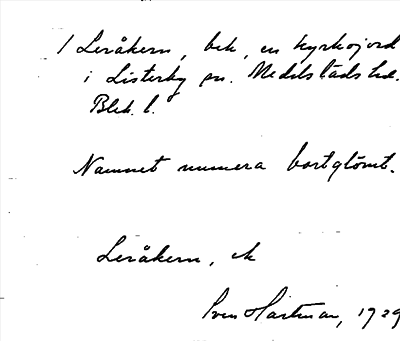 1 Leråkern, bek, en kyrkojord
i Listerby sn. Medelstads hd.
Blek. l.
Namnet numera bortglömt.
Leråkern, ek
Sven Hartman, 1929